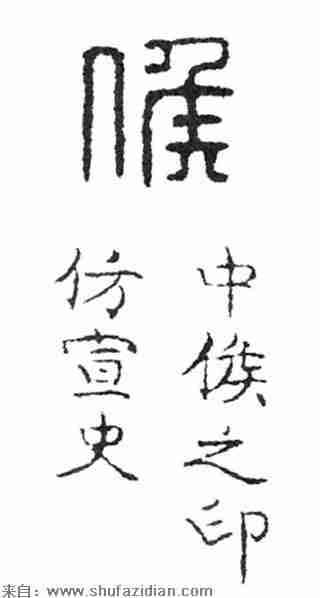 候
中候之印
仿宣史
来自：www.shufazidian.com